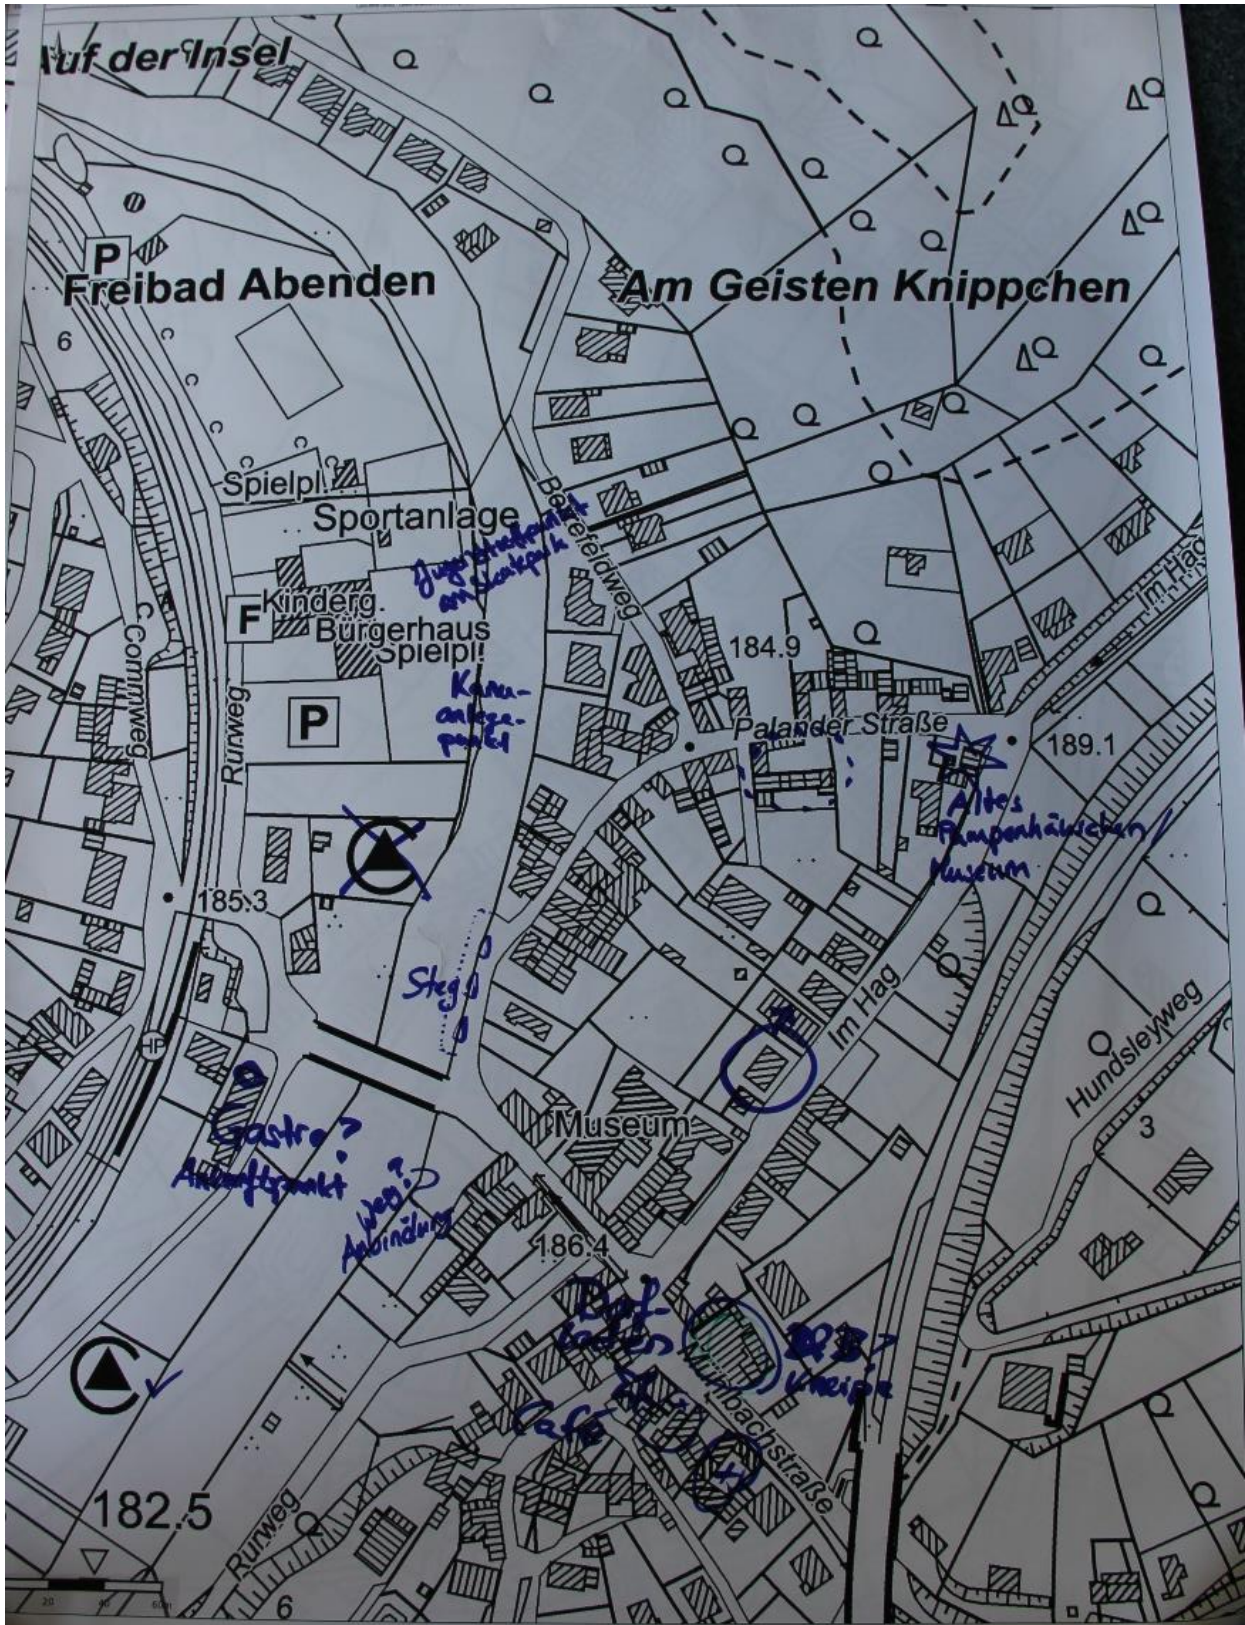 Auf der Insel
P
Freibad Abenden
Am Geisten Knippchen
6
Spielpl.
Sportanlage
Jugendtreffpunkt
am Skatepark
Berefeldweg
Im Hag
F
Kinderg.
Bürgerhaus
Spielpl.
184.9
Commweg
Rurweg
P
Kanu-
anlege-
punkt
Palander Straße
189.1
Altes
Pumpenhäuschen
Museum
185.3
Steg
Im Hag
HP
Hundsleyweg
3
Museum
Gastro?
Ankunftspunkt
Weg?
Anbindung
186.4
Dorf-
laden
Kneipe
Café
Mühlbachstraße
182.5
Rurweg
6
20 40 60m